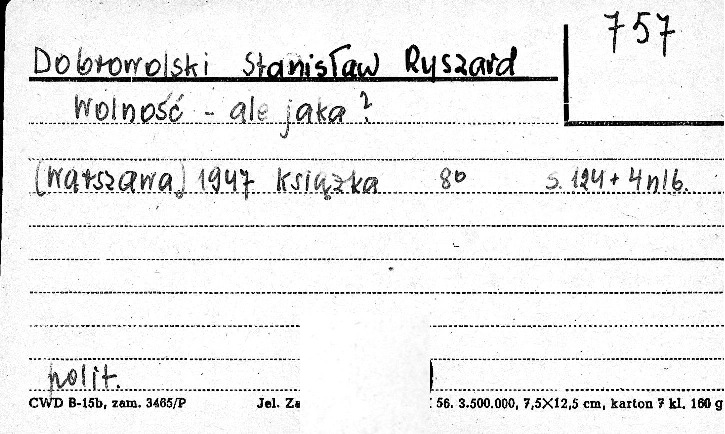 757
Dobrowolski Stanisław Ryszard
Wolność - ale jaka?
(Warszawa) 1947 Książka 8° s. 124 + 4 nlb.
polit.
CWD B-15b, zam. 3465/P Jel. Za 56. 3.500.000, 7,5×12,5 cm, karton 7 kl. 160 g